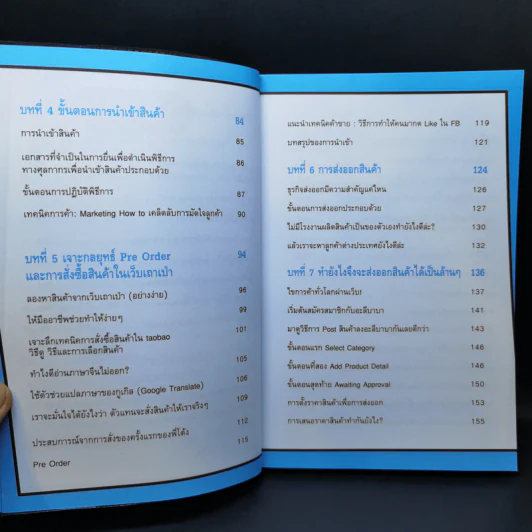 บทที่ 4 ขั้นตอนการนำเข้าสินค้า 84
การนำเข้าสินค้า 85
เอกสารที่จำเป็นในการยื่นเพื่อดำเนินพิธีการ 86
ทางศุลกากรเพื่อนำเข้าสินค้าประกอบด้วย
ขั้นตอนการปฏิบัติพิธีการ 87
เทคนิคการค้า: Marketing How to เคล็ดลับการมัดใจลูกค้า 90
บทที่ 5 เจาะกลยุทธ์ Pre Order 94
และการสั่งซื้อสินค้าในเว็บเถาเป่า
ลองหาสินค้าจากเว็บเถาเป่า (อย่างง่าย) 96
ให้มืออาชีพช่วยทำให้ง่ายๆ 99
เจาะลึกเทคนิคการสั่งซื้อสินค้าใน taobao 101
วิธีดู วิธีและการเลือกสินค้า
ทำไงดีอ่านภาษาจีนไม่ออก? 105
ใช้ตัวช่วยแปลภาษาของกูเกิล (Google Translate) 106
เราจะมั่นใจได้ยังไงว่า ตัวแทนจะสั่งสินค้าให้เราจริงๆ 109
ประสบการณ์จากการสั่งของครั้งแรกของพี่โด้ง 112
Pre Order 115
แนะนำเทคนิคค้าขาย : วิธีการทำให้คนมากด Like ใน FB 119
บทสรุปของการนำเข้า 121
บทที่ 6 การส่งออกสินค้า 124
ธุรกิจส่งออกมีความสำคัญแค่ไหน 126
ขั้นตอนการส่งออกประกอบด้วย 127
ไม่มีโรงงานผลิตสินค้าเป็นของตัวเองทำยังไงดีล่ะ? 130
แล้วเราจะหาลูกค้าต่างประเทศยังไงดีล่ะ 132
บทที่ 7 ทำยังไงจึงจะส่งออกสินค้าได้เป็นล้านๆ 136
ไขการค้าทั่วโลกผ่านเว็บ! 137
เริ่มต้นสมัครสมาชิกกับอะลีบาบา 141
มาดูวิธีการ Post สินค้าลงอะลีบาบากันเลยดีกว่า 143
ขั้นตอนแรก Select Category 146
ขั้นตอนที่สอง Add Product Detail 146
ขั้นตอนสุดท้าย Awaiting Approval 150
การตั้งราคาสินค้าเพื่อการส่งออก 153
การเสนอราคาสินค้าทำกันยังไง? 155